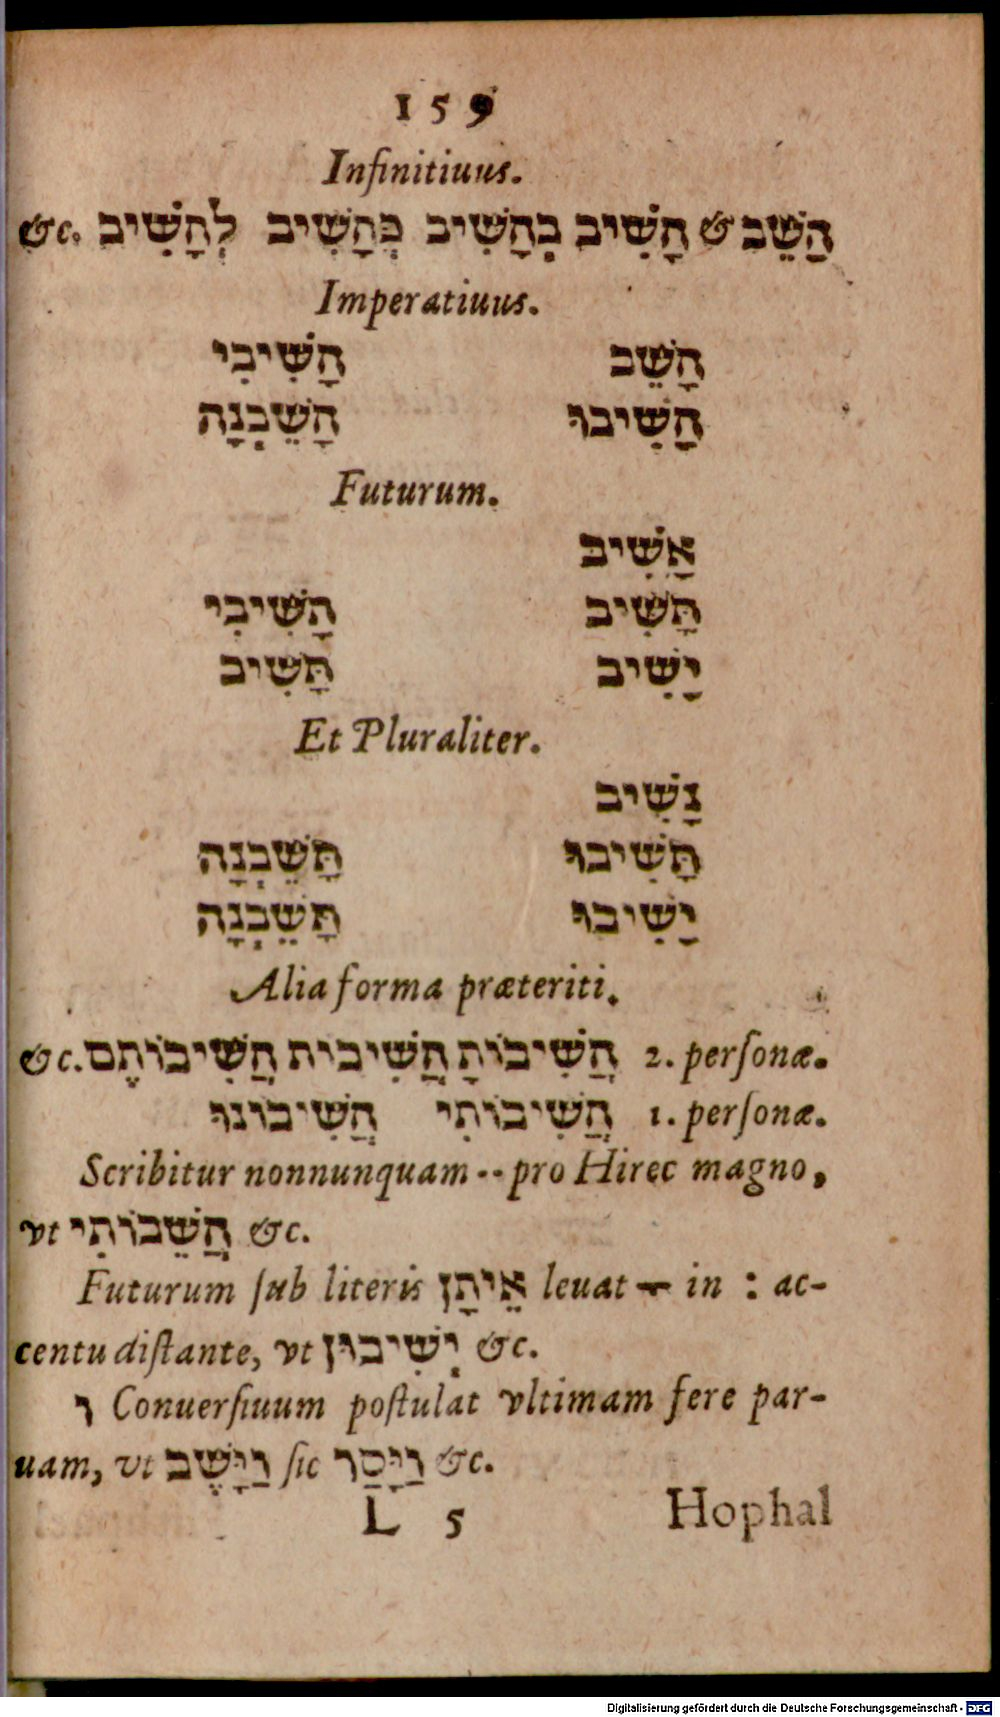 159
Infinitiuus.
הָשֵׁב & הָשִׁיב בְהָשִׁיב כְּהָשִׁיב לְהָשִׁיב &c.
Imperatiuus.
הָשֵׁב הָשִׁיבִי
הָשִׁיבוּ הָשֵׁבְנָה
Futurum.
אָשִׁיב
תָּשִׁיב תָשִׁיבִי
יָשִׁיב תָּשִׁיב
Et Pluraliter.
נָשִׁיב
תָּשִׁיבוּ תָּשֵׁבְנָה
יָשִׁיבוּ תָּשֵׁבְנָה
Alia forma præteriti.
הֲשִׁיבוֹתָ הֲשִׁיבית הֲשִׁיבוֹתֶם &c. 2. personæ.
הֲשִׁיבוֹתִי הֲשִׁיבוֹנוּ 1. personæ.
Scribitur nonnunquam ·· pro Hirec magno,
vt הֲשֵׁבוֹתִי &c.
Futurum sub literis אֵיתָן leuat ־ in : ac-
centu distante, vt יְשִׁיבוּן &c.
ו Conuersiuum postulat vltimam fere par-
uam, vt וַיָּשֶׁב sic וַיָּסַר &c.
L 5 Hophal
Digitalisierung gefördert durch die Deutsche Forschungsgemeinschaft - DFG